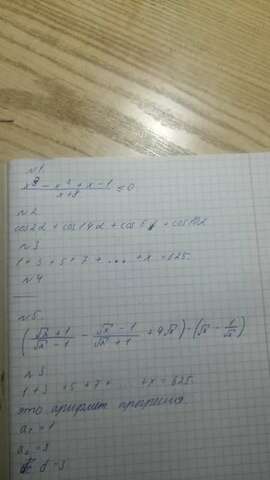 №1.
(x³ - x² + x - 1)/(x+8) = 0
№2
cos2α + cos14α + cos6α + cos10α
№3
1+3+5+7+ ... +x=625
№4
—
№5.
((√x+1)/(√x-1) - (√x-1)/(√x+1) + 4√x) · (√x - 1/√x)
№3
1+3+5+7+ ... +x=625.
это арифмет прогрессия
a₁=1
a₂=3
d=3